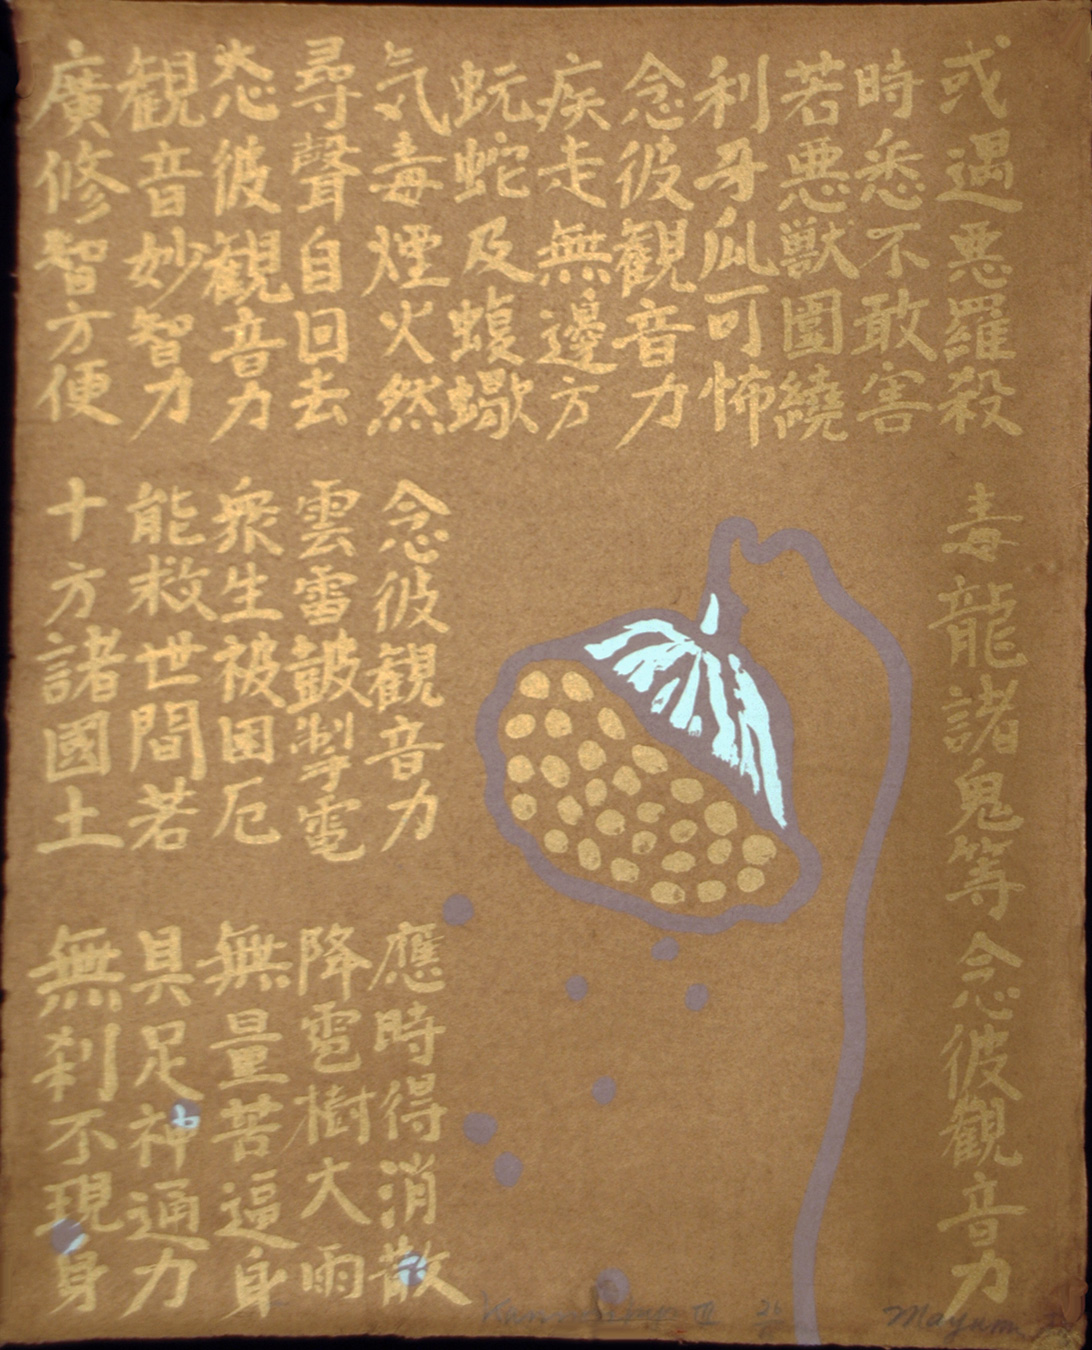 或遇悪羅殺 毒龍諸鬼等 念彼観音力
時悉不敢害
若悪獣圍繞
利牙爪可怖
念彼観音力
疾走無邊方
蚖蛇及蝮蠍
気毒煙火然 念彼観音力 應時得消散
尋聲自回去 雲雷皷掣電 降雹樹大雨
念彼観音力 衆生被困厄 無量苦逼身
観音妙智力 能救世間若 具足神通力
廣修智方便 十方諸國土 無刹不現身
III
Mayumi